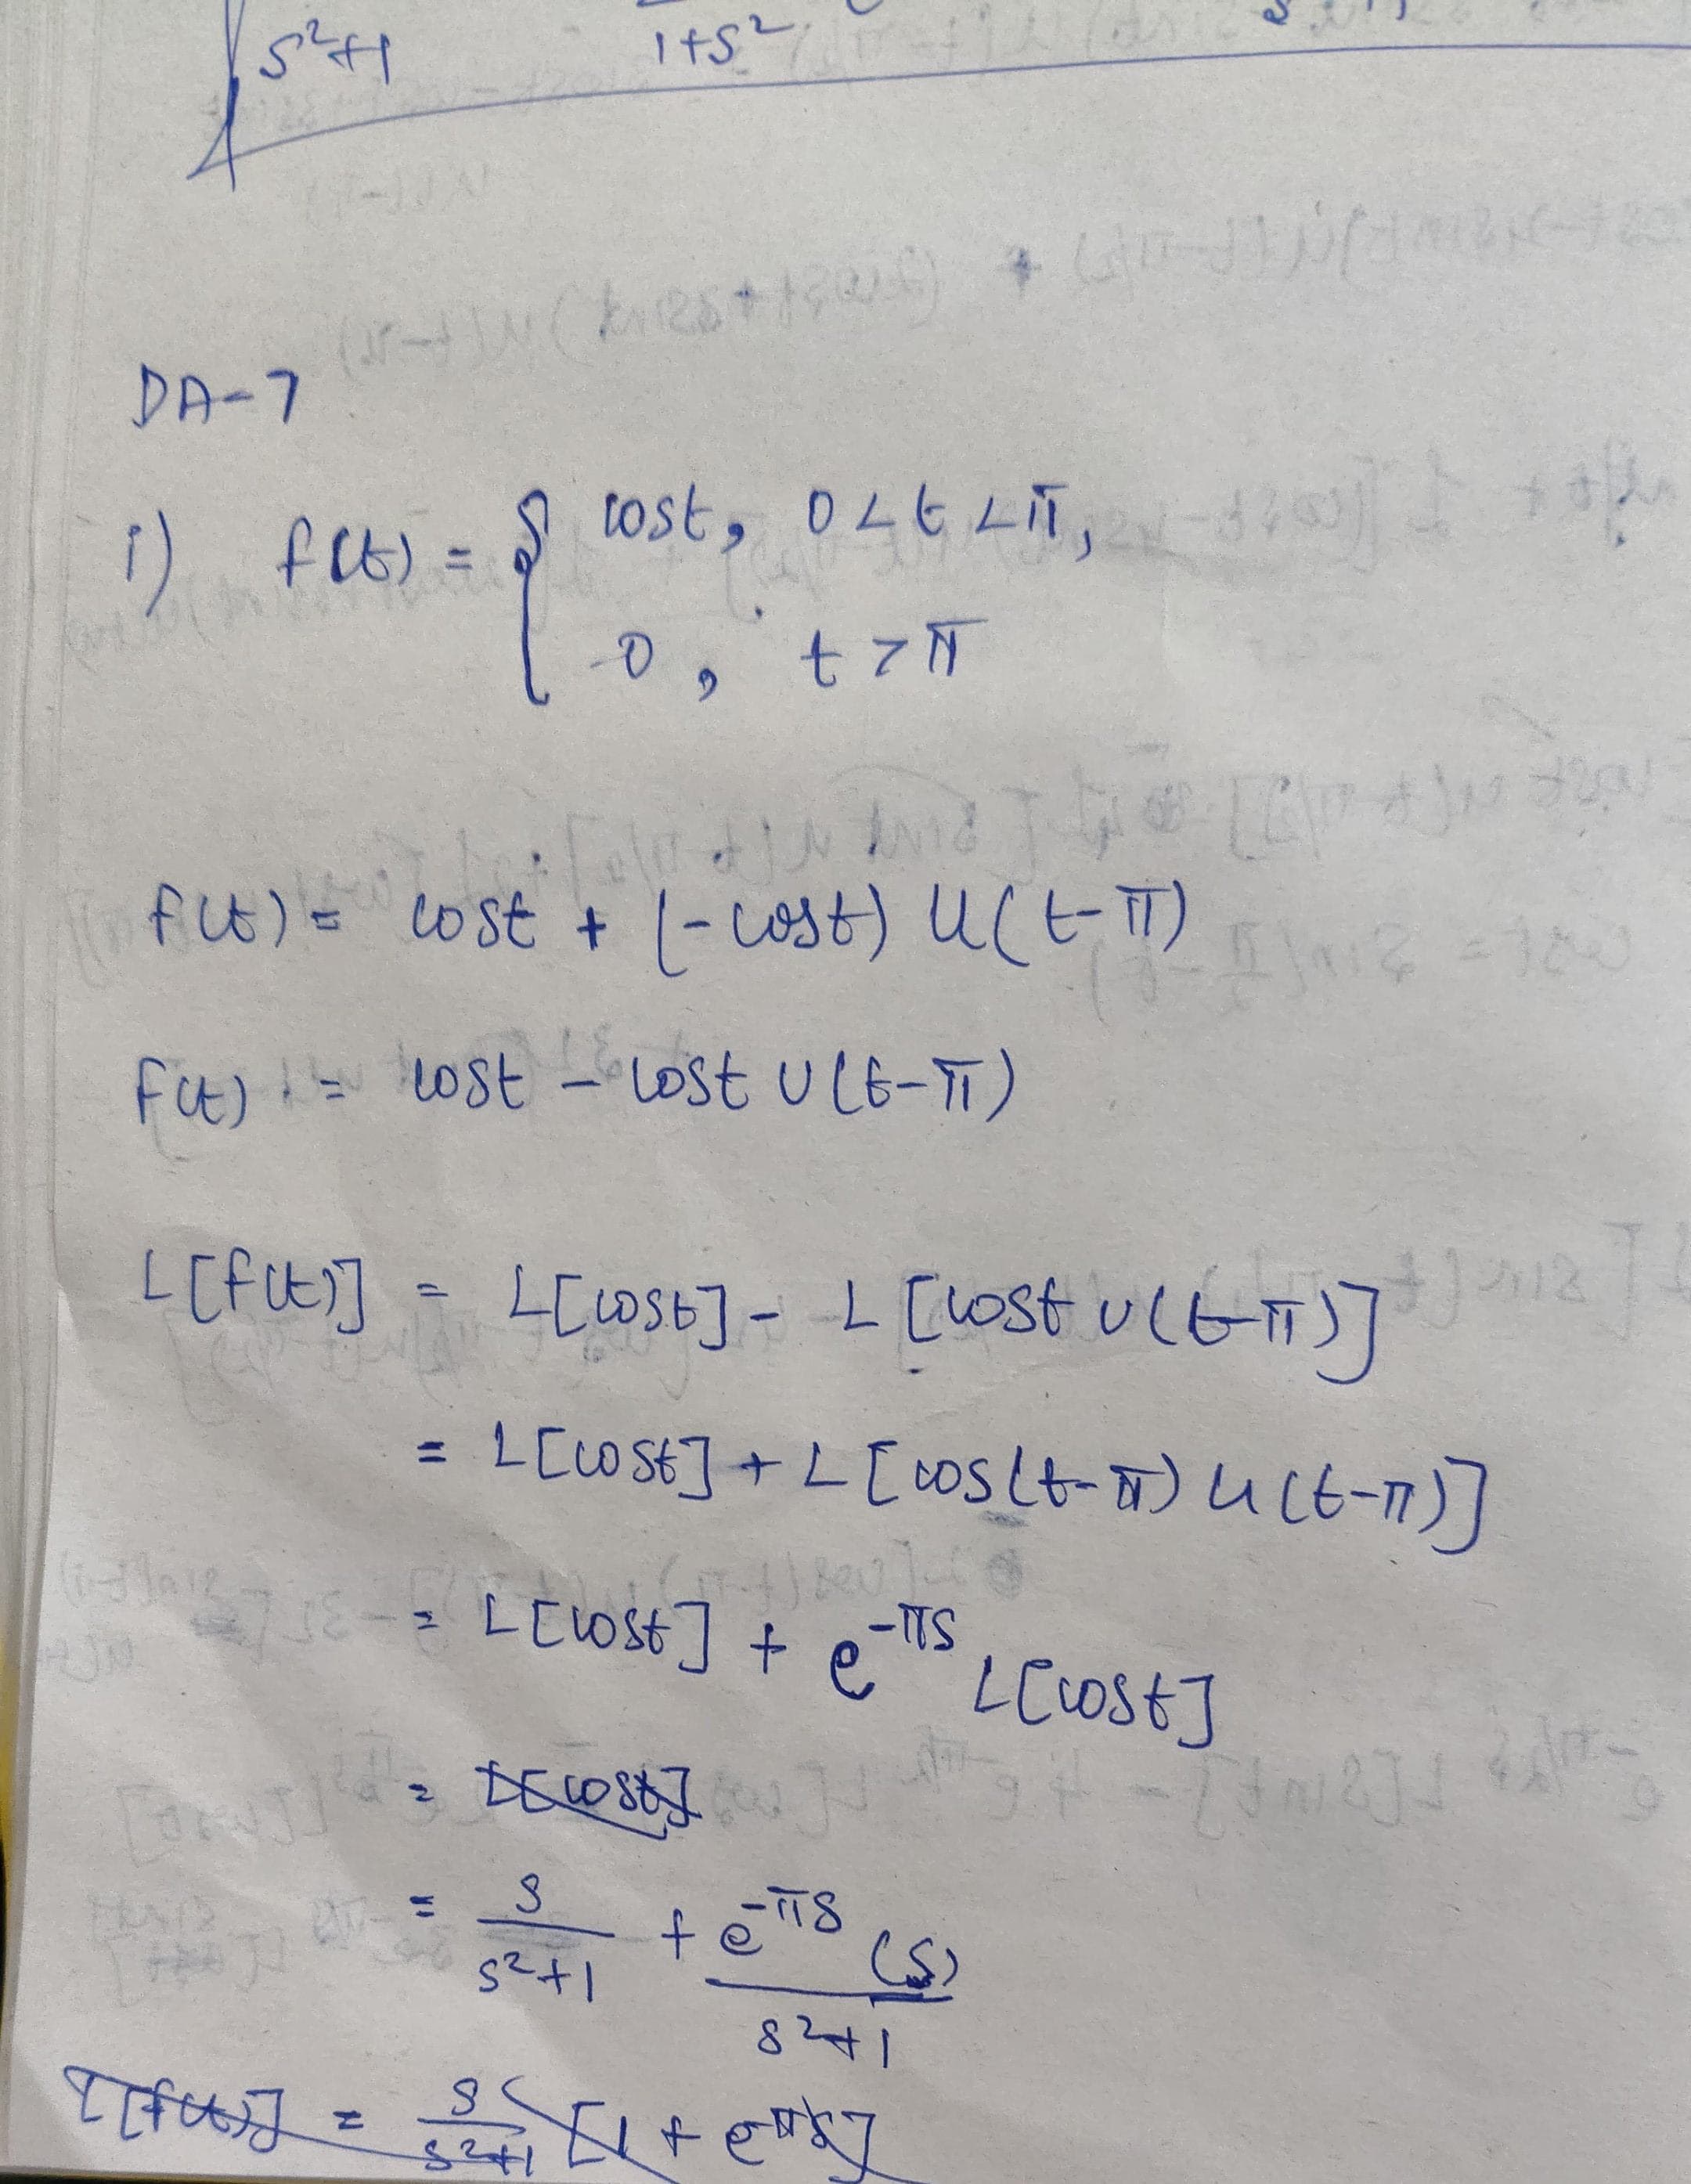 s²+1 1+s²
DA-7
i) f(t) = { cost, 0 < t < π,
0, t > π
f(t) = cost + (-cost) U(t-π)
f(t) = cost - cost U(t-π)
L[f(t)] = L[cost] - L[cost U(t-π)]
= L[cost] + L[cos(t-π) U(t-π)]
= L[cost] + e^-πs L[cost]
= L[cost]
= s/(s²+1) + e^-πs (s)/(s²+1)
L[f(t)] = s/(s²+1) [1 + e^πs]